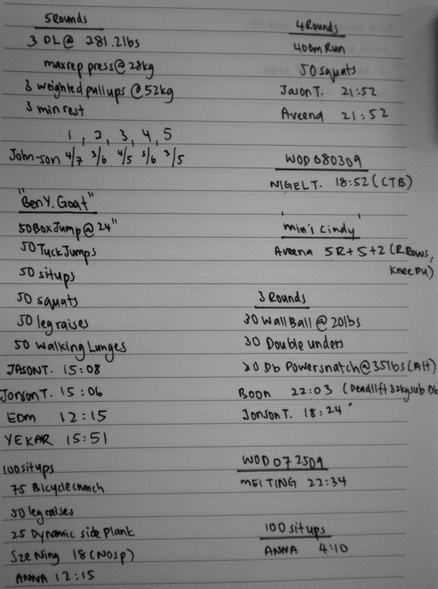 5 Rounds
3 DL @ 281.2lbs
max rep press @ 28kg
3 weighted pullups @ 52kg
3 min rest
1 , 2 , 3 , 4 , 5
John-son 4/7 3/6 4/5 3/6 3/5
"Ben Y. Goat"
50 Box Jump @ 24"
50 Tuck Jumps
50 situps
50 squats
50 leg raises
50 walking Lunges
JASON T. 15:08
Jonson T. 15:06
EDM 12:15
YEKAR 15:51
100 situps
75 Bicycle crunch
50 leg raises
25 Dynamic side Plank
Sze Ning 18 (NOSP)
ANNA 12:15
4 Rounds
400m Run
50 squats
Jason T. 21:52
Aveena 21:52
WOD 080309
NIGEL T. 18:52 (CTB)
'mini Cindy'
Aveena 5R + 5 + 2 (R Rows,
Knee PU)
3 Rounds
30 Wall Ball @ 20lbs
30 Double unders
30 Db Power snatch @ 35lbs (Alt)
BOON 22:03 (Deadlift 32kg sub Db
Jonson T. 18:24
WOD 072509
MEITING 22:34
100 situps
ANNA 4:10